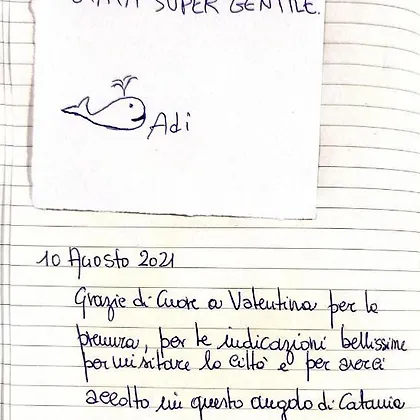 SUPER GENTILE.
Adi
10 Agosto 2021
Grazie di Cuore a Valentina per la
premura, per le indicazioni bellissime
per visitare la città e per averci
accolto in questo angolo di Catania